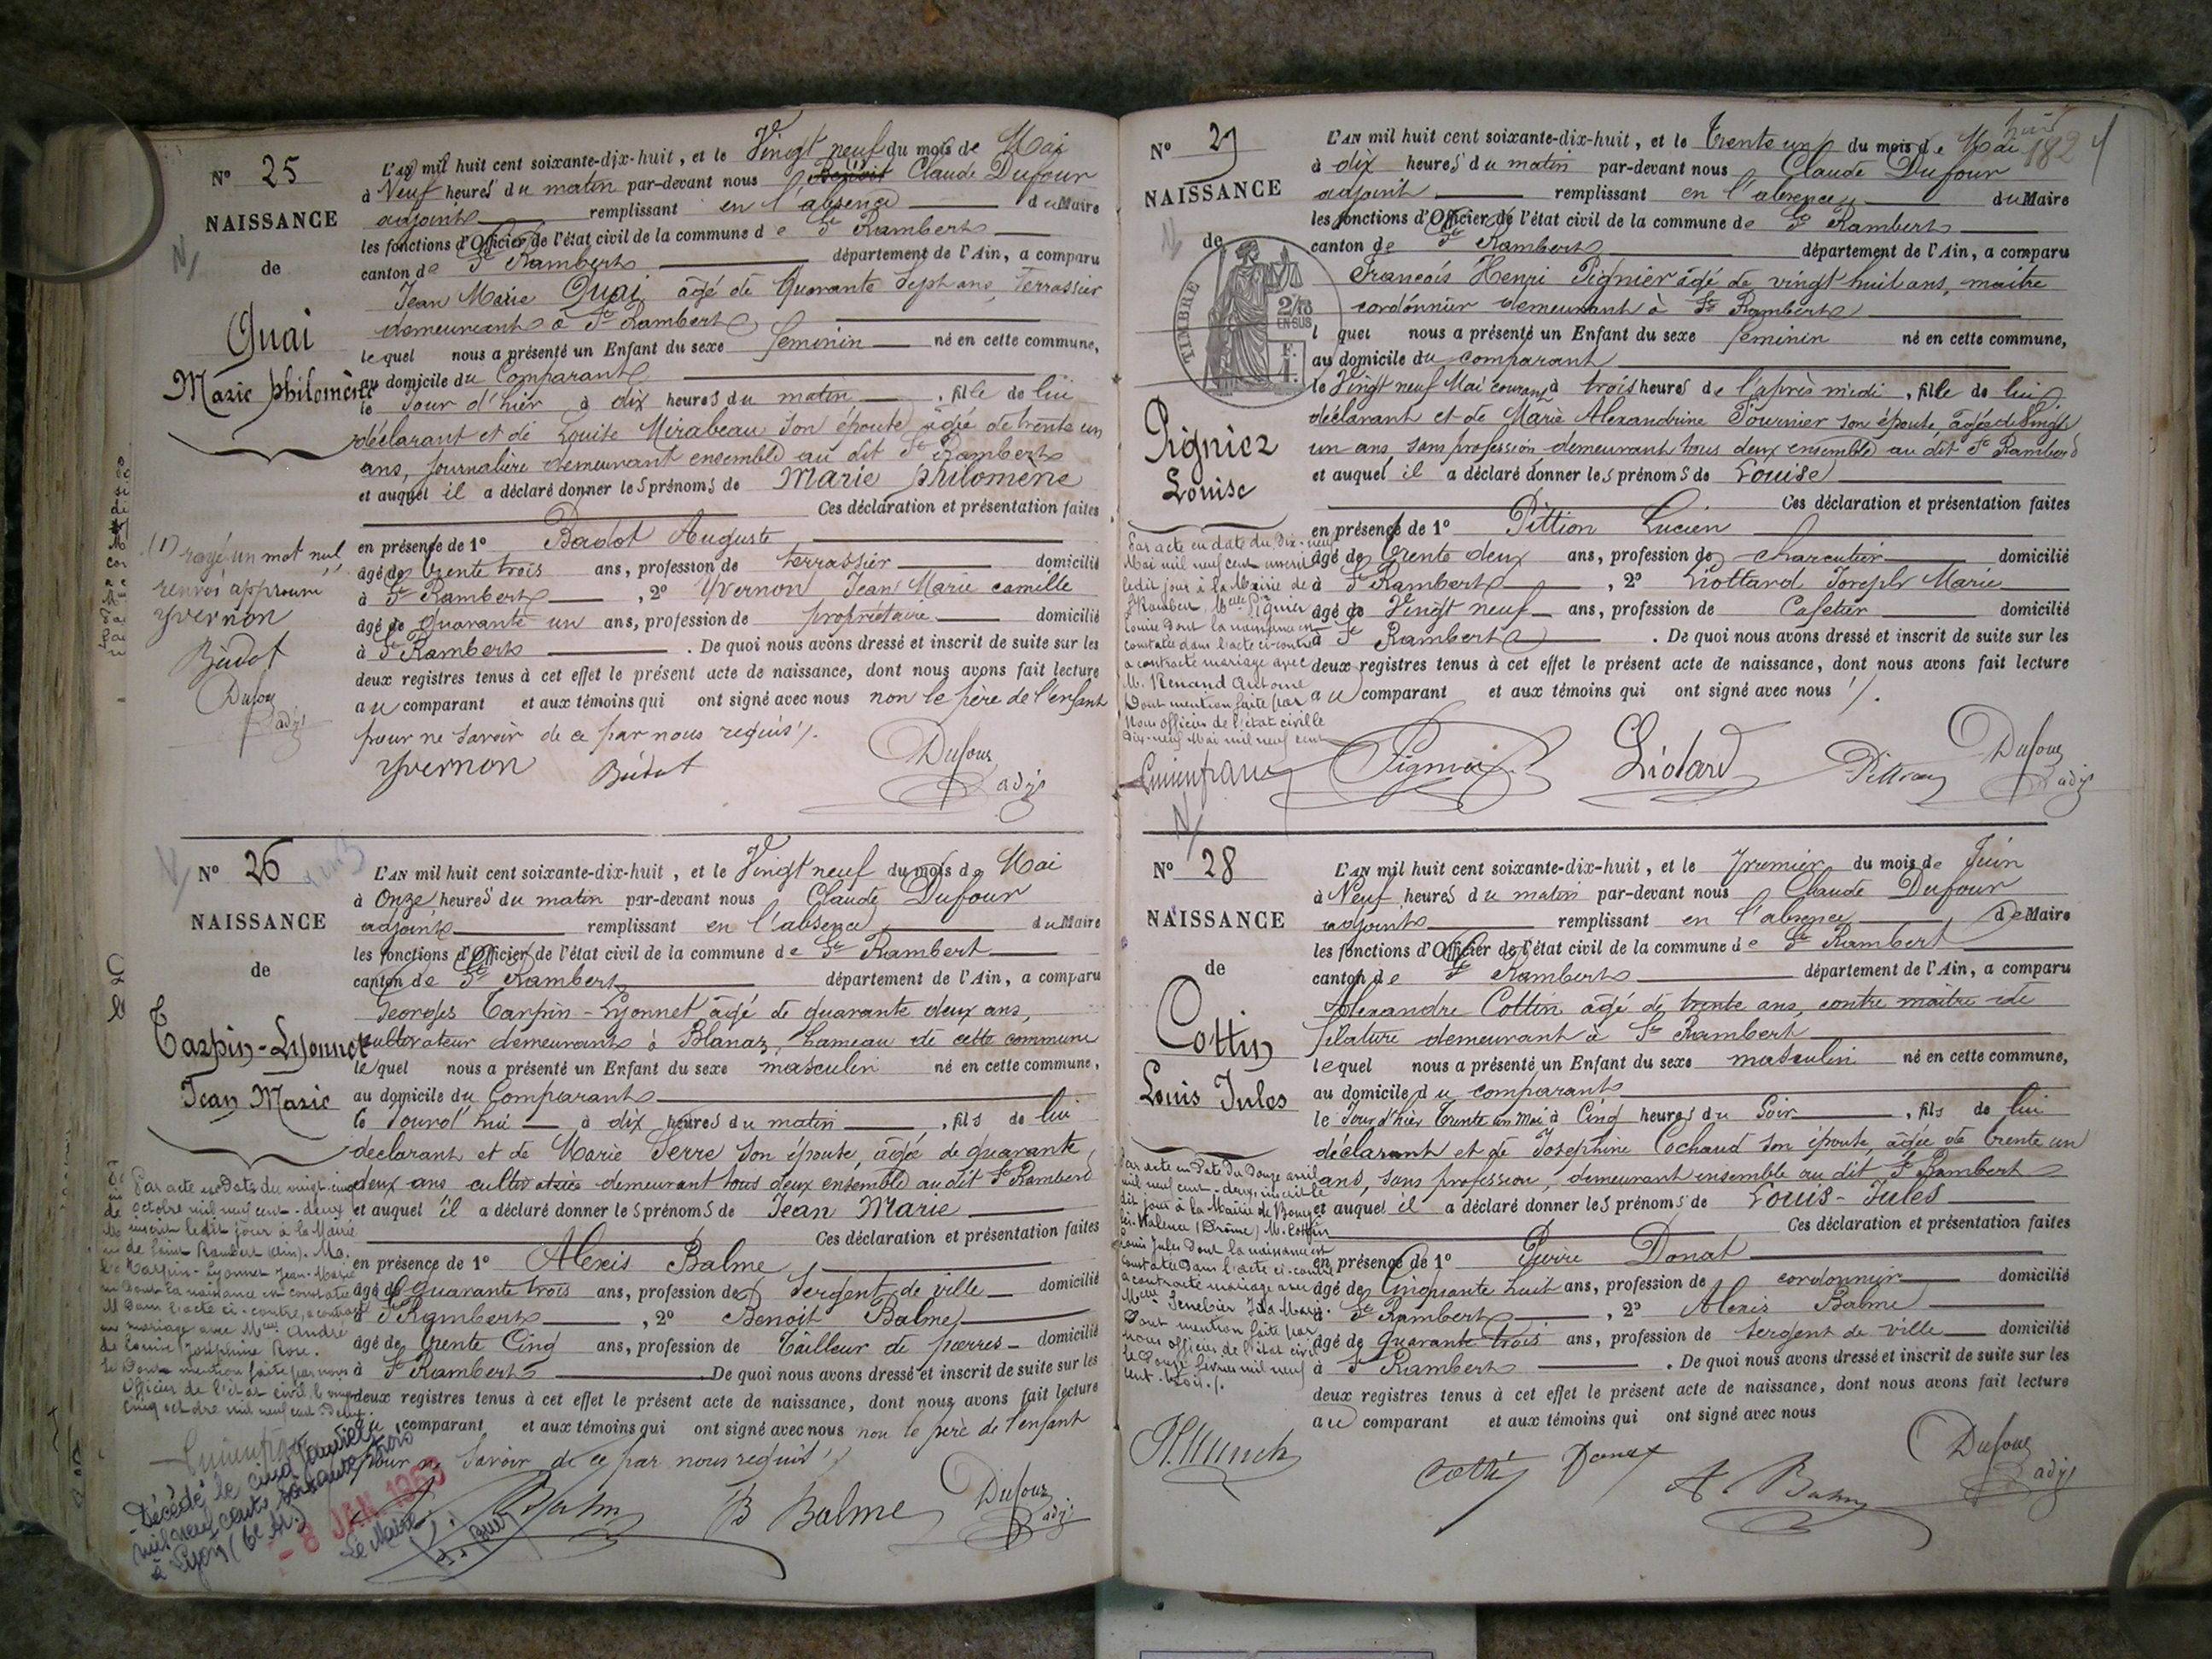 N° 25
NAISSANCE
de
Quai
Marie philomène
(1) rayé un mot nul
renvoi approuvé
Yvernon
Badot
Dufour
adjt
L'AN mil huit cent soixante-dix-huit, et le Vingt neuf du mois de Mai
à Neuf heures du matin par-devant nous Claude Dufour
adjoint remplissant en l'absence du Maire
les fonctions d'Officier de l'état civil de la commune de St Rambert
canton de St Rambert département de l'Ain, a comparu
Jean Marie Quai âgé de Quarante Sept ans, Terrassier
demeurant à St Rambert
lequel nous a présenté un Enfant du sexe féminin né en cette commune,
au domicile du Comparant
le Jour d'hier à dix heures du matin, fille de lui
déclarant et de Louise Mirabeau son épouse âgée de trente un
ans, journalière demeurant ensemble au dit St Rambert
et auquel il a déclaré donner les prénoms de Marie philomène
Ces déclaration et présentation faites
en présence de 1° Badot Auguste
âgé de trente trois ans, profession de terrassier domicilié
à St Rambert, 2° Yvernon Jean Marie camille
âgé de quarante un ans, profession de propriétaire domicilié
à St Rambert. De quoi nous avons dressé et inscrit de suite sur les
deux registres tenus à cet effet le présent acte de naissance, dont nous avons fait lecture
au comparant et aux témoins qui ont signé avec nous non le père de l'enfant
pour ne savoir de ce par nous requis /.
Yvernon Badot Dufour adjt
N° 26
NAISSANCE
de
Tarpin-Lyonnet
Jean Marie
Par acte en Date du vingt-cinq
octobre mil neuf cent-deux
inscrit ledit jour à la Mairie
de Saint Rambert (Ain). Mr.
Tarpin-Lyonnet Jean-Marie
Dont la naissance est constatée
Dans l'acte ci-contre, a contracté
mariage avec Melle André
Louise Joséphine Rose.
Dont mention faite par nous
Officier de l'état civil le vingt
cinq octobre mil neuf cent-Deux.
Décédé le cinq janvier
mil neuf cent soixante trois
à Lyon (6e Ar.)
- 8 JAN 1963
Le Maire
L'AN mil huit cent soixante-dix-huit, et le Vingt neuf du mois de Mai
à Onze heures du matin par-devant nous Claude Dufour
adjoint remplissant en l'absence du Maire
les fonctions d'Officier de l'état civil de la commune de St Rambert
canton de St Rambert département de l'Ain, a comparu
Georges Tarpin-Lyonnet âgé de quarante deux ans,
cultivateur demeurant à Blanaz, hameau de cette commune
lequel nous a présenté un Enfant du sexe masculin né en cette commune,
au domicile du Comparant
le Jourd'hui à dix heures du matin, fils de lui
déclarant et de Marie Serre son épouse, âgée de quarante
deux ans cultivatrice demeurant tous deux ensemble au dit St Rambert
et auquel il a déclaré donner les prénoms de Jean Marie
Ces déclaration et présentation faites
en présence de 1° Alexis Balme
âgé de Quarante trois ans, profession de Sergent de ville domicilié
à St Rambert, 2° Benoit Balme
âgé de trente Cinq ans, profession de Tailleur de pierres domicilié
à St Rambert. De quoi nous avons dressé et inscrit de suite sur les
deux registres tenus à cet effet le présent acte de naissance, dont nous avons fait lecture
au comparant et aux témoins qui ont signé avec nous non le père de l'enfant
pour ne savoir de ce par nous requis /.
B Balme Dufour adjt
N° 27
NAISSANCE
de
TIMBRE
2/10
EN SUS
Pignier
Louise
Par acte en date du Dix-neuf
Mai mil neuf cent inscrit
ledit jour à la Mairie de
St Rambert, Melle Pignier
Louise Dont la naissance est
constatée dans l'acte ci-contre
a contracté mariage avec
M. Renand Antoine
Dont mention faite par
Nous officier de l'état civil le
Dix-neuf Mai mil neuf cent
L'AN mil huit cent soixante-dix-huit, et le trente un du mois de Mai
à dix heures du matin par-devant nous Claude Dufour
adjoint remplissant en l'absence du Maire
les fonctions d'Officier de l'état civil de la commune de St Rambert
canton de St Rambert département de l'Ain, a comparu
François Henri Pignier âgé de vingt huit ans, maitre
cordonnier demeurant à St Rambert
lequel nous a présenté un Enfant du sexe féminin né en cette commune,
au domicile du comparant
le Vingt neuf Mai courant à trois heures de l'après midi, fille de lui
déclarant et de Marie Alexandrine Fournier son épouse, âgée de Vingt
un ans, sans profession demeurant tous deux ensemble au dit St Rambert
et auquel il a déclaré donner les prénoms de Louise
Ces déclaration et présentation faites
en présence de 1° Pittion Lucien
âgé de trente deux ans, profession de charcutier domicilié
à St Rambert, 2° Liottard Joseph Marie
âgé de Vingt neuf ans, profession de Cafetier domicilié
à St Rambert. De quoi nous avons dressé et inscrit de suite sur les
deux registres tenus à cet effet le présent acte de naissance, dont nous avons fait lecture
au comparant et aux témoins qui ont signé avec nous /.
Pignier Liotard Pittion Dufour adjt
N° 28
NAISSANCE
de
Cottin
Louis Jules
Par acte en Date du Douze avril
mil neuf cent-deux, inscrit le
dit jour à la Mairie de Bourg-
lès-Valence (Drôme) M. Cottin
Louis Jules Dont la naissance est
constatée Dans l'acte ci-contre
a contracté mariage avec
Melle Senebier Ida Marie.
Dont mention faite par
nous officier de l'état civil
le Douze février mil neuf
cent-trois /.
H. Munch
L'AN mil huit cent soixante-dix-huit, et le premier du mois de Juin
à Neuf heures du matin par-devant nous Claude Dufour
adjoint remplissant en l'absence de Maire
les fonctions d'Officier de l'état civil de la commune de St Rambert
canton de St Rambert département de l'Ain, a comparu
Alexandre Cottin âgé de trente ans, contre maître de
filature demeurant à St Rambert
lequel nous a présenté un Enfant du sexe masculin né en cette commune,
au domicile du comparant
le Jour d'hier trente un Mai à Cinq heures du Soir, fils de lui
déclarant et de Joséphine Cochaud son épouse, âgée de trente un
ans, sans profession, demeurant ensemble au dit St Rambert
et auquel il a déclaré donner les prénoms de Louis-Jules
Ces déclaration et présentation faites
en présence de 1° Pierre Donat
âgé de Cinquante huit ans, profession de cordonnier domicilié
à St Rambert, 2° Alexis Balme
âgé de quarante trois ans, profession de sergent de ville domicilié
à St Rambert. De quoi nous avons dressé et inscrit de suite sur les
deux registres tenus à cet effet le présent acte de naissance, dont nous avons fait lecture
au comparant et aux témoins qui ont signé avec nous
Donat Dufour adjt